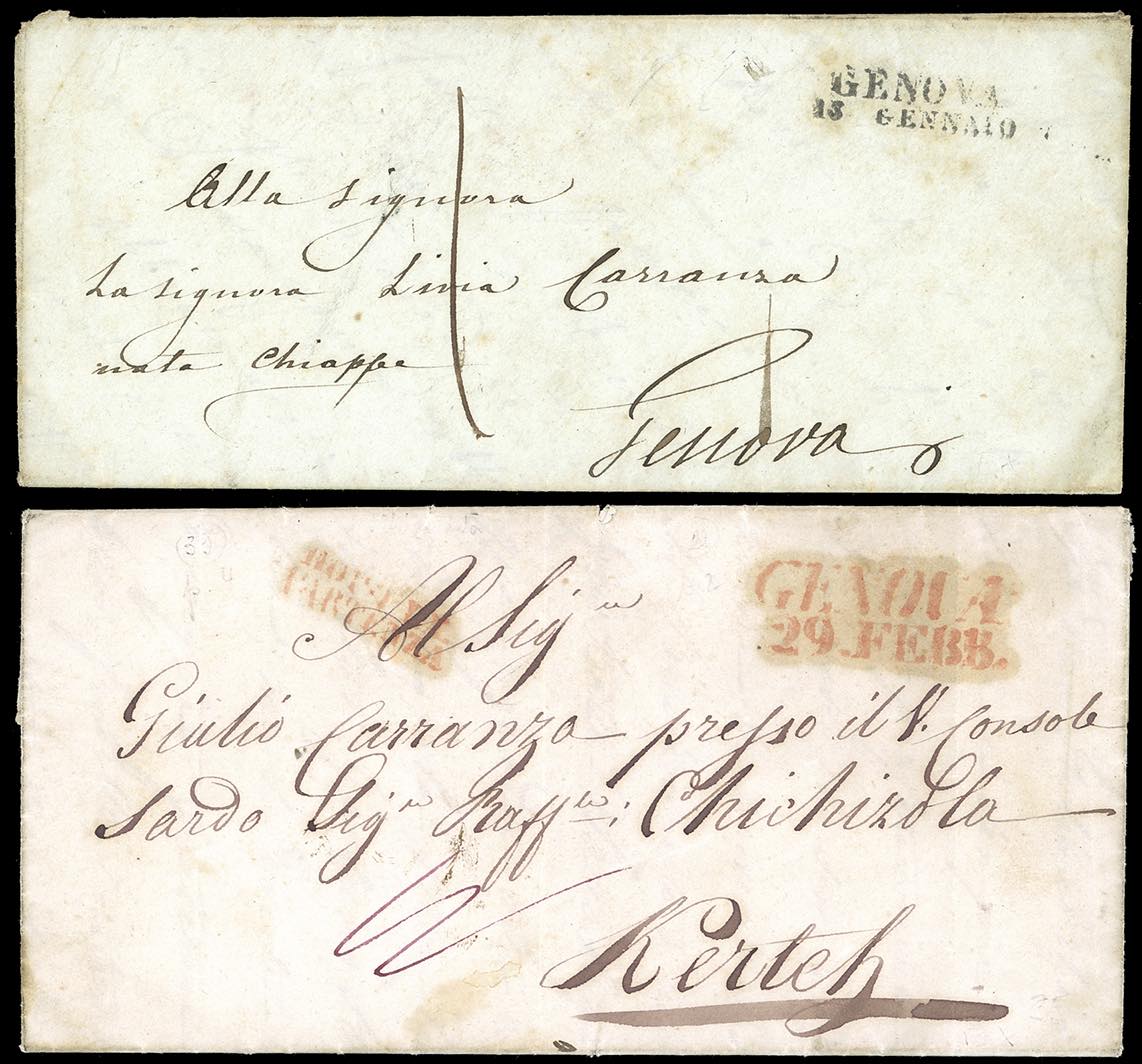 GENOVA
13 GENNAIO
Alla Signora
La Signora Livia Carranza
nata Chiappe
Genova
35
GENOVA
29. FEBB.
PARTENZA
Al Sig.re
Giulio Carranza presso il V. Console
Sardo Sig.r Raff.le: Chichizola
Kertch